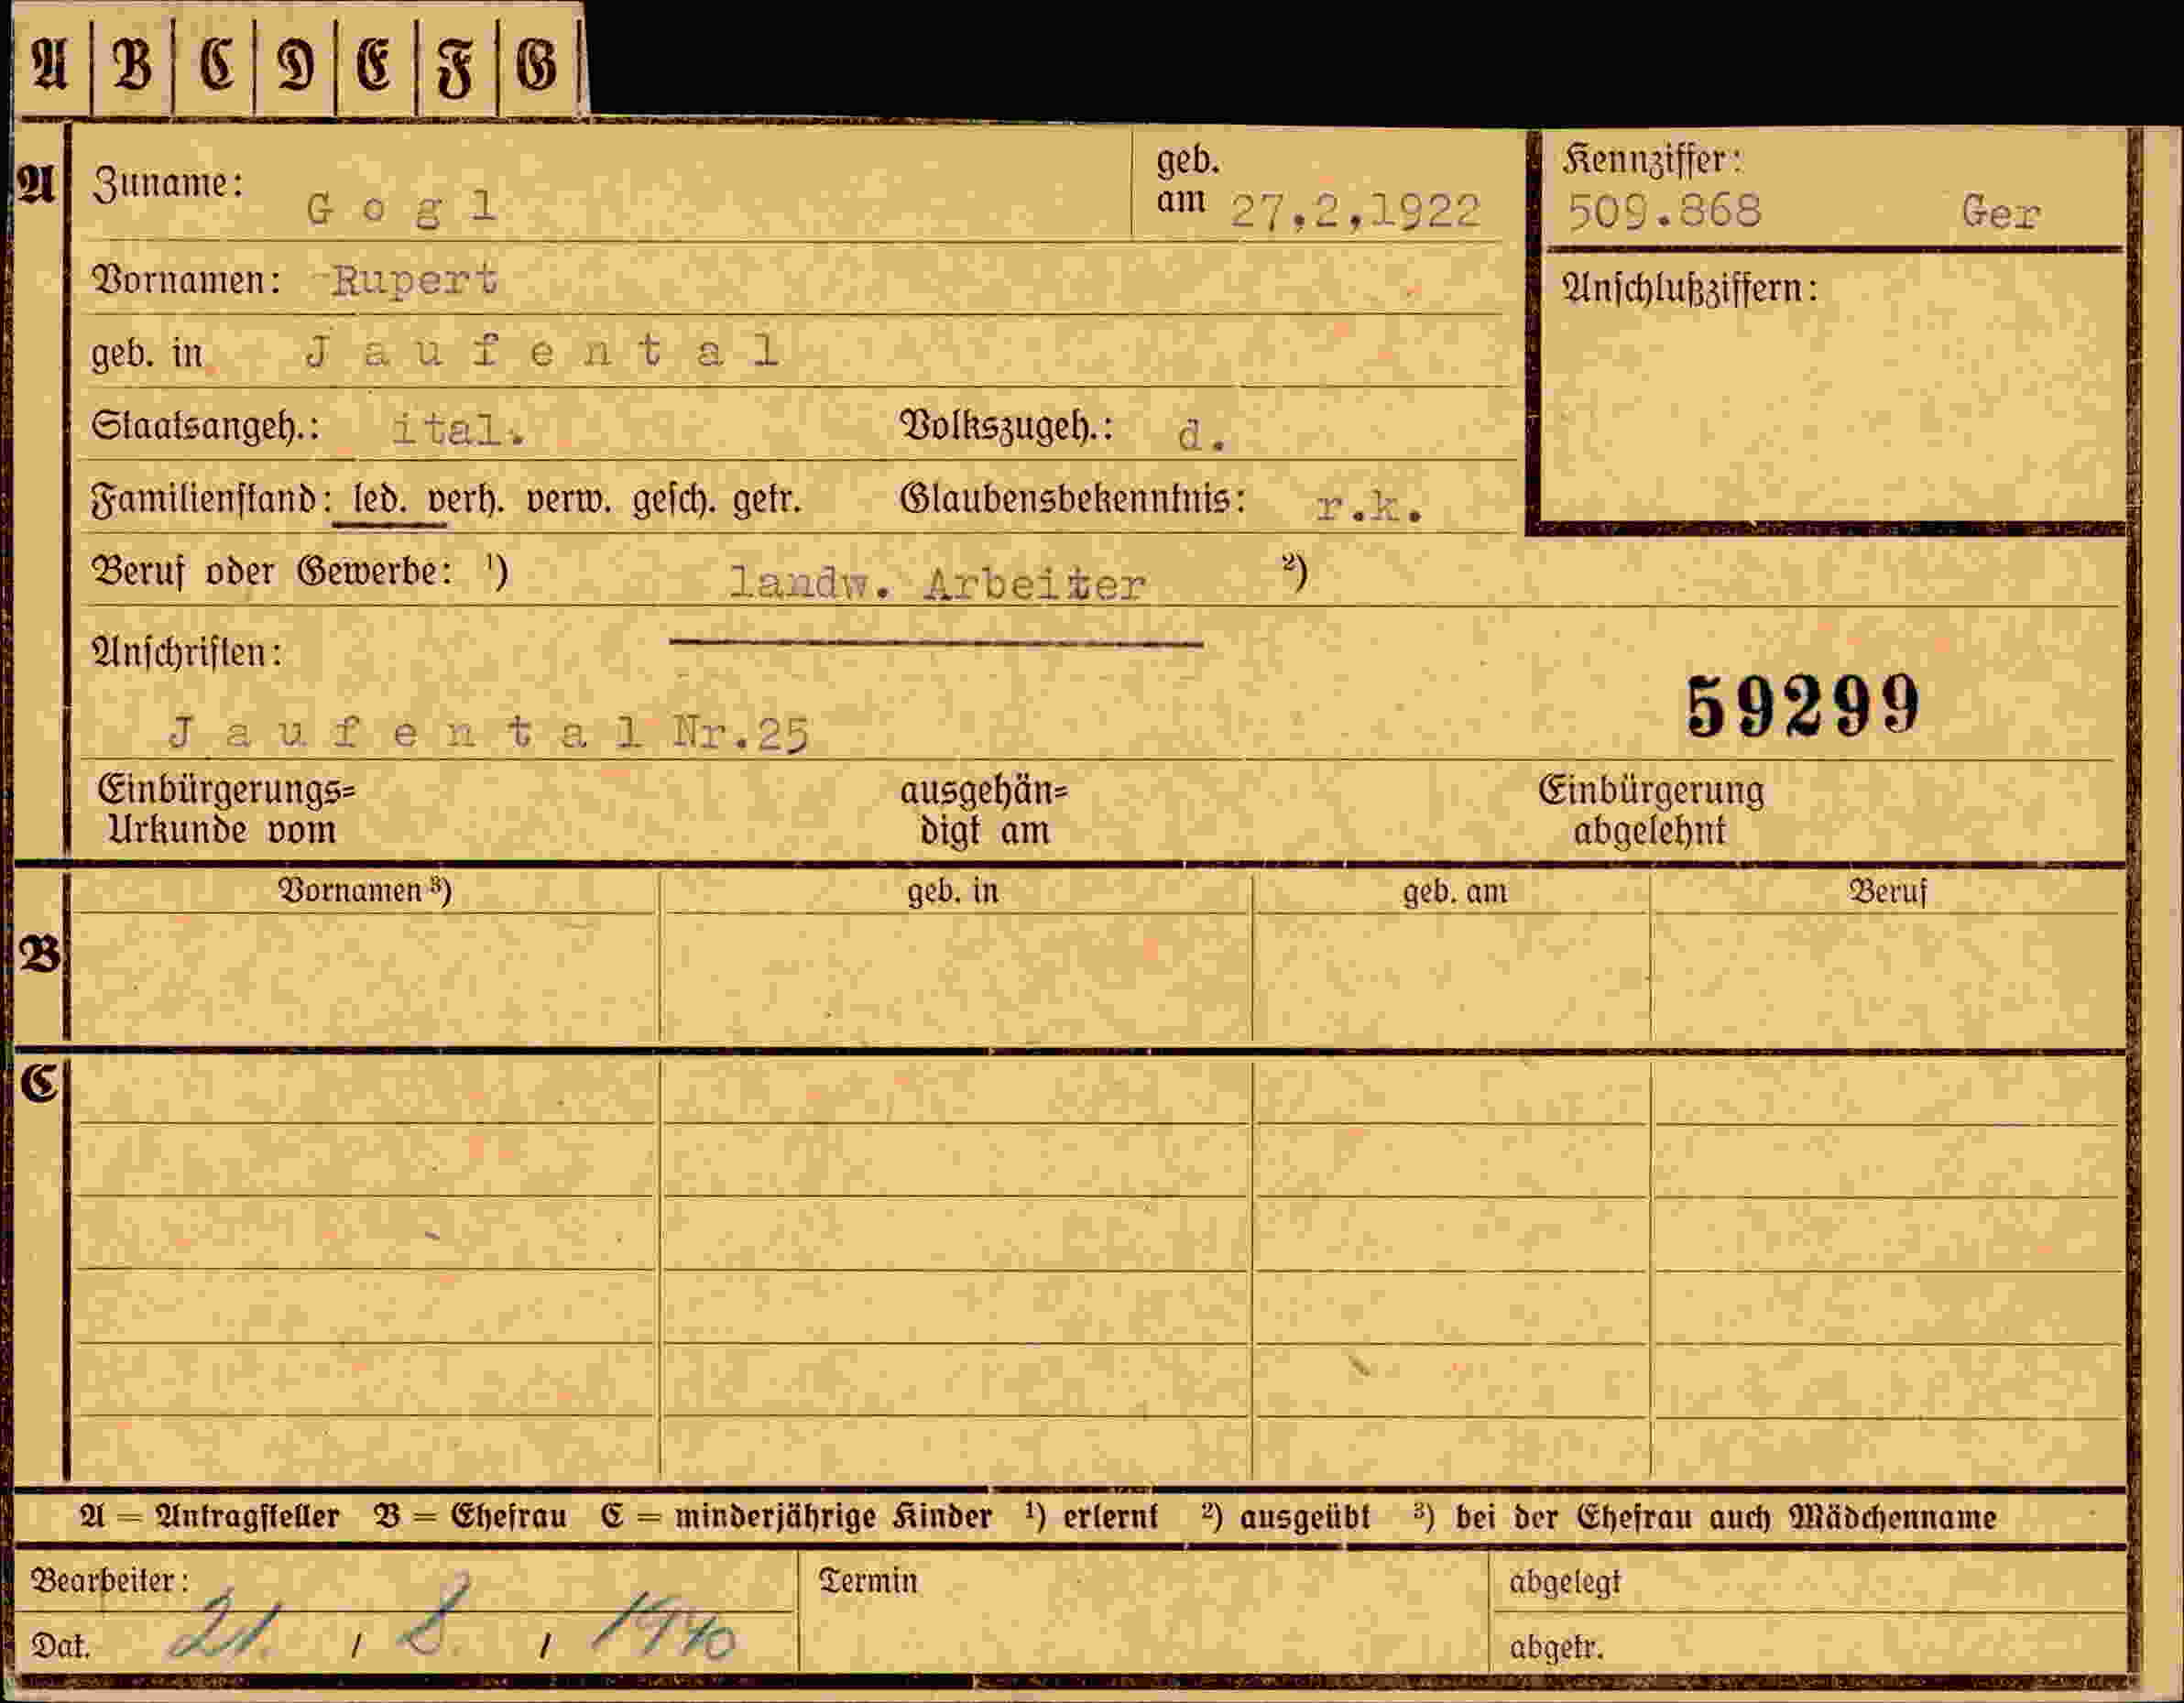 A B C D E F G
A Zuname: Gogl geb. am 27.2.1922 Kennziffer: 509.868 Ger
Vornamen: Rupert Anschlußziffern:
geb. in Jaufental
Staatsangeh.: ital. Volkszugeh.: d.
Familienstand: led. verh. verw. gesch. getr. Glaubensbekenntnis: r.k.
Beruf oder Gewerbe: ¹) landw. Arbeiter ²)
Anschriften:
59299
Jaufental Nr.25
Einbürgerungs= ausgehän= Einbürgerung
Urkunde vom digt am abgelehnt
B Vornamen ³) geb. in geb. am Beruf
C
A = Antragsteller B = Ehefrau C = minderjährige Kinder ¹) erlernt ²) ausgeübt ³) bei der Ehefrau auch Mädchenname
Bearbeiter: Termin abgelegt
Dat. 21. / 8. / 1940 abgetr.